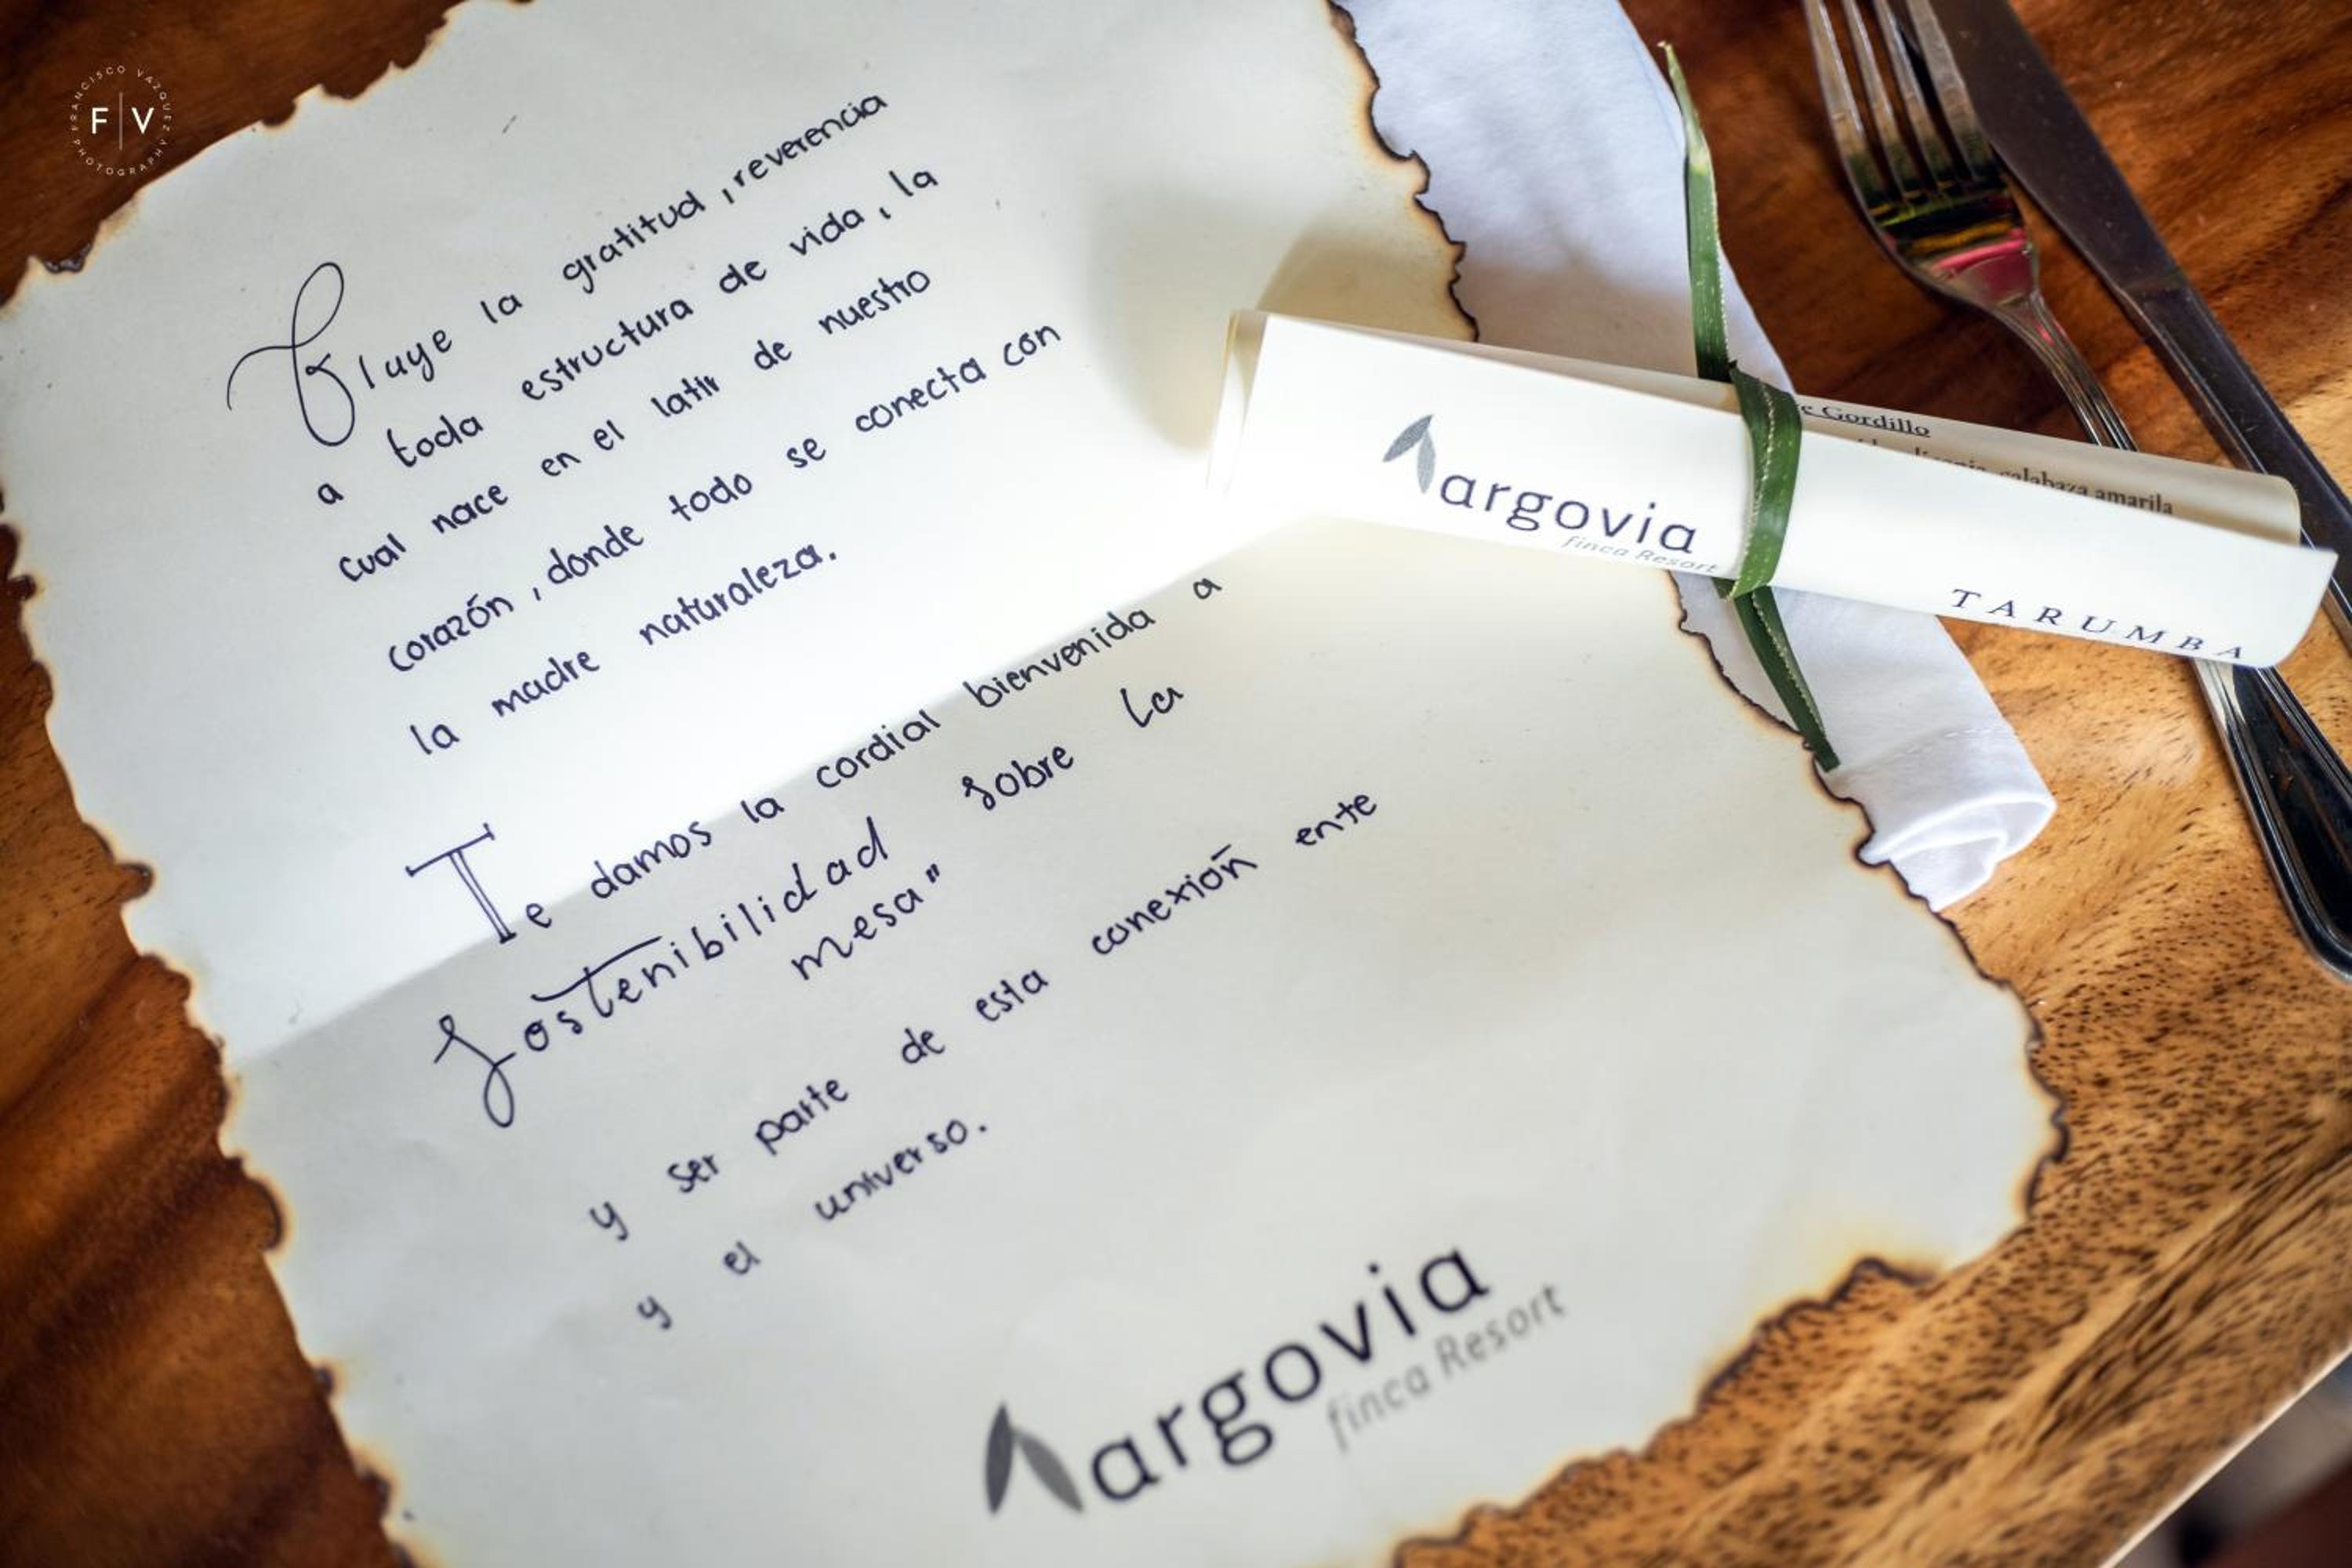 FRANCISCO VAZQUEZ
F | V
PHOTOGRAPHY
Fluye la gratitud, reverencia
a toda estructura de vida, la
cual nace en el latir de nuestro
corazón, donde todo se conecta con
la madre naturaleza.
Te damos la cordial bienvenida a
Sostenibilidad sobre la
mesa"
y ser parte de esta conexión ente
y el universo.
argovia
finca Resort
e Gordillo
calabaza amarilla
argovia
finca Resort
TARUMBA